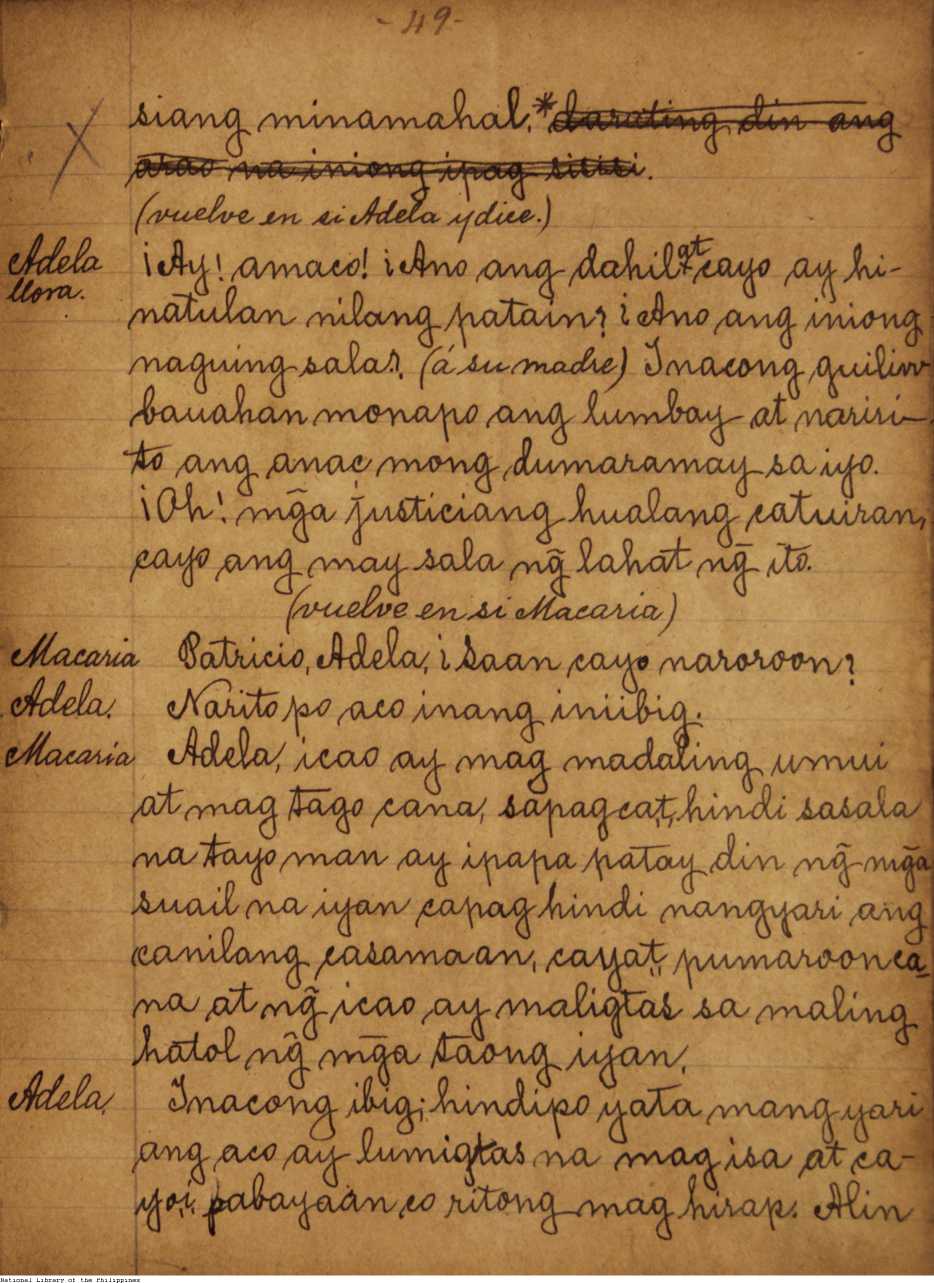 -49-
siang minamahal.* darating din ang
arao na iniong ipag sisisi.
(vuelve en si Adela y dice.)
Adela ¡Ay! amaco! ¡Ano ang dahil at cayo ay hi-
llora. natulan nilang patain? ¿Ano ang iniong
naguing sala?, (á su madre) Inacong guiliw
bauahan monapo ang lumbay at nariri-
to ang anac mong dumaramay sa iyo.
¡Oh! mg̃a justiciang hualang catuiran,
cayo ang may sala ng̃ lahat ng̃ ito.
(vuelve en si Macaria)
Macaria Patricio, Adela, ¿Saan cayo naroroon?
Adela. Narito po aco inang iniibig.
Macaria Adela, icao ay mag madaling umui
at mag tago cana, sapagcat, hindi sasala
na tayo man ay ipapa patay din ng̃ mg̃a
suail na iyan capag hindi nangyari ang
canilang casamaan, cayat, pumaroon ca-
na at ng̃ icao ay maligtas sa maling
hatol ng̃ mg̃a taong iyan.
Adela. Inacong ibig; hindipo yata mangyari
ang aco ay lumigtas na mag isa at ca-
yoi, pabayaan co ritong mag hirap. Alin
National Library of the Philippines